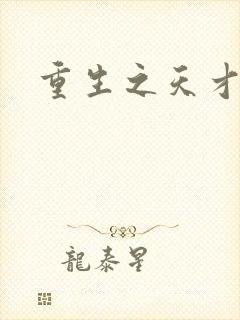 重生之天才
龍泰星